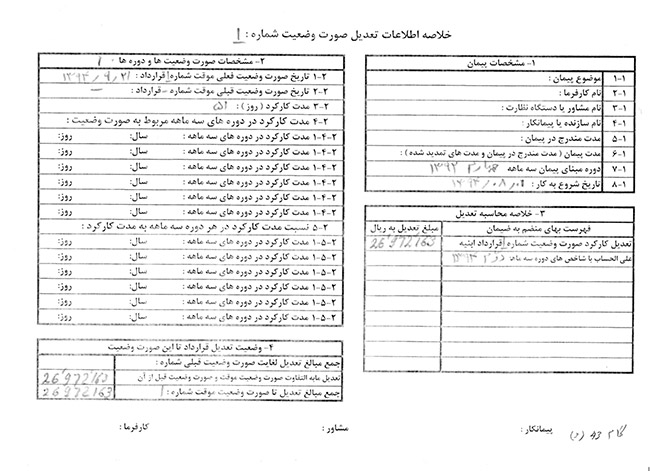 خلاصه اطلاعات تعدیل صورت وضعیت شماره : 1
۱- مشخصات پیمان
۱-۱ موضوع پیمان :
۲-۱ نام کارفرما :
۳-۱ نام مشاور یا دستگاه نظارت :
۴-۱ نام سازنده یا پیمانکار :
۵-۱ مدت مندرج در پیمان :
۶-۱ مدت پیمان ( مدت مندرج در پیمان و مدت های تمدید شده ) :
۷-۱ دوره مبنای پیمان سه ماهه چهارم ۱۳۹۲
۸-۱ تاریخ شروع به کار :
۲- مشخصات صورت وضعیت ها و دوره ها
۱-۲ تاریخ صورت وضعیت فعلی موقت شماره 1 قرارداد : ۱۳۹۳/۹/۲۱
۲-۲ تاریخ صورت وضعیت قبلی موقت شماره - قرارداد : -
۳-۲ مدت کارکرد ( روز ) : ۵۱
۴-۲ مدت کارکرد در دوره های سه ماهه مربوط به صورت وضعیت :
۱-۴-۲ مدت کارکرد در دوره های سه ماهه : سال: روز:
۱-۴-۲ مدت کارکرد در دوره های سه ماهه : سال: روز:
۱-۴-۲ مدت کارکرد در دوره های سه ماهه : سال: روز:
۱-۴-۲ مدت کارکرد در دوره های سه ماهه : سال: روز:
۱-۴-۲ مدت کارکرد در دوره های سه ماهه : سال: روز:
۱-۴-۲ مدت کارکرد در دوره های سه ماهه : سال: روز:
۵-۲ نسبت مدت کارکرد در هر دوره سه ماهه به مدت کارکرد :
۱-۵-۲ مدت کارکرد در دوره های سه ماهه : سال: روز:
۱-۵-۲ مدت کارکرد در دوره های سه ماهه : سال: روز:
۱-۵-۲ مدت کارکرد در دوره های سه ماهه : سال: روز:
۱-۵-۲ مدت کارکرد در دوره های سه ماهه : سال: روز:
۱-۵-۲ مدت کارکرد در دوره های سه ماهه : سال: روز:
۱-۵-۲ مدت کارکرد در دوره های سه ماهه : سال: روز:
۳- خلاصه محاسبه تعدیل
فهرست بهای منضم به ضیمان مبلغ تعدیل به ریال
تعدیل کارکرد صورت وضعیت شماره 1 قرارداد ابنیه 26'972'163
علی الحساب با شاخص های دوره سه ماهه دوم ۱۳۹۳
۴- وضعیت تعدیل قرارداد تا این صورت وضعیت
جمع مبالغ تعدیل لغایت صورت وضعیت قبلی شماره :
تعدیل مابه التفاوت صورت وضعیت موقت و صورت وضعیت قبل از آن 26'972'163
جمع مبالغ تعدیل تا صورت وضعیت موقت شماره : 1 26'972'163
پیمانکار : مشاور : کارفرما :